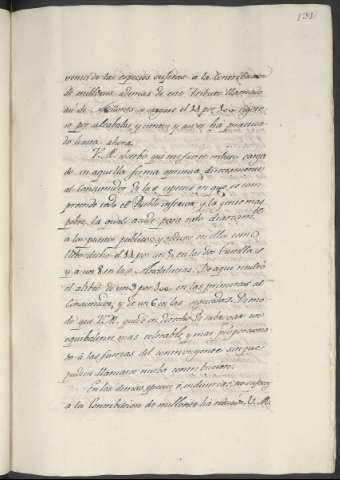 131
venta de las especies sugetas à la Contribucion
de millones ademas de este tributo llamado
de Millones se cargase el 14 por 100
so por alcabalas y cientos y que se ha practica-
do hasta ahora.
V.M. deseoso que me fuese mitiga carga
de en aquella forma aprecia directamente
al Consumidor de las especies en que se com-
prende todo el Pueblo inferior, y la gente mas
pobre, la qual acude para todo diariamte.
a los puestos publicos; reduxo en ellos como
llebo dicho el 14 por 100 à 5, en las dos Castillas
y a un 8 en las Andalucias. De aqui nació
el alibio de un 9 por 100, en las primeras al
Consumidor, y de un 6 en las segundas. De mo-
do que V.M. quedó en derecho de subrogar un
equibalente mas tolerable, y mas proporciona-
do à las fuerzas del contribuyente sin que
pudiese llamarse nueba contribucion.
En las demas especies è industrias, no sugetas
à la Contribucion de millones ha reducido V.M.